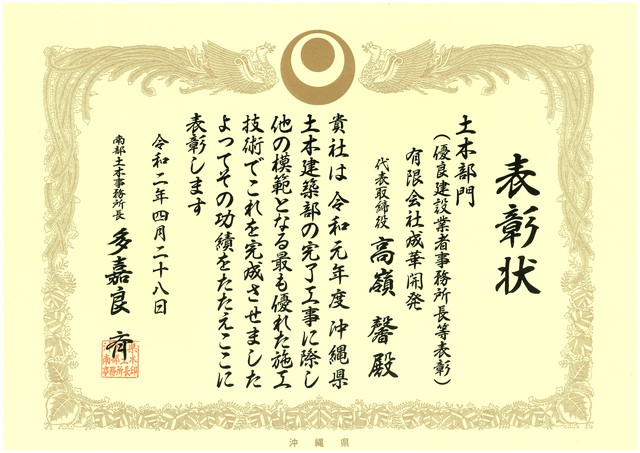 表彰状
土木部門
（優良建設業者事務所長等表彰）
有限会社成華開発
代表取締役 高嶺 馨 殿
貴社は令和元年度沖縄県
土木建築部の完了工事に際し
他の模範となる最も優れた施工
技術でこれを完成させました
よってその功績をたたえここに
表彰します
令和二年四月二十八日
南部土木事務所長 多嘉良 斉
沖縄県